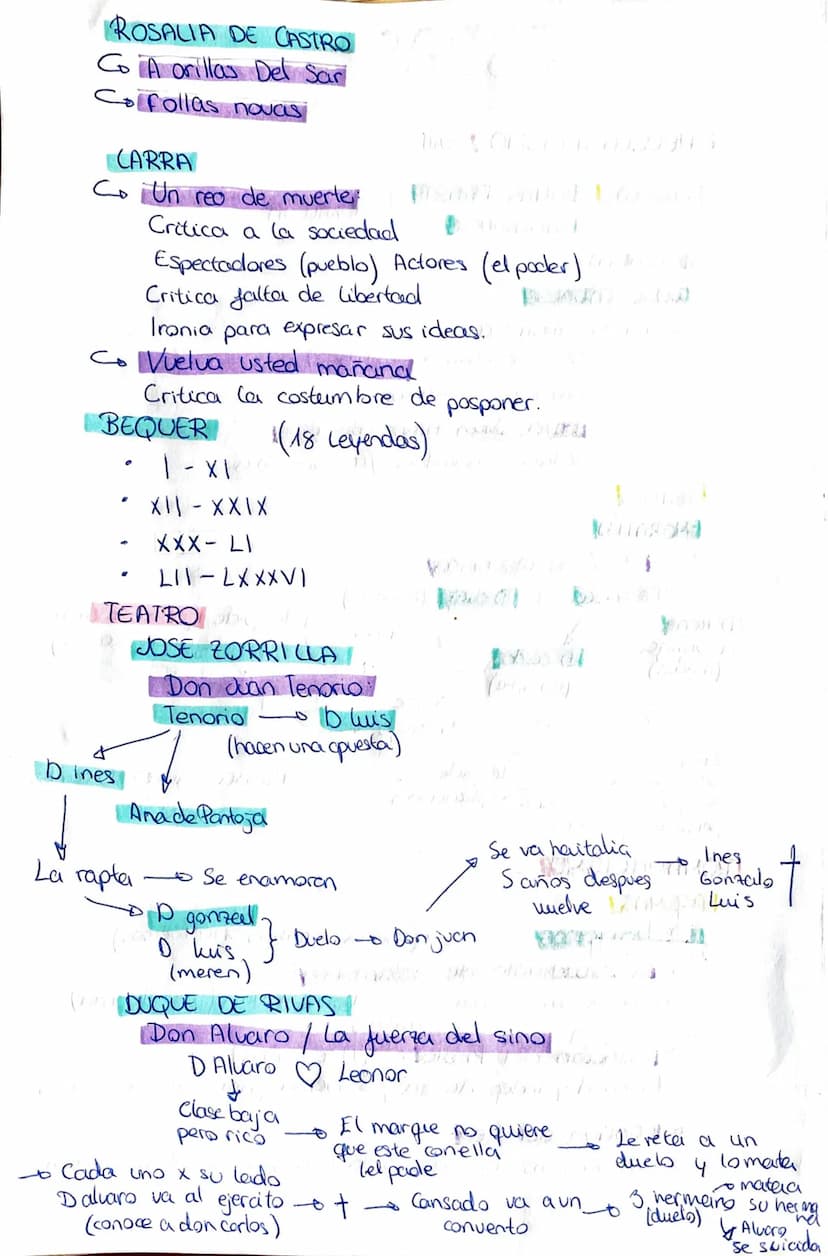 ROSALIA DE CASTRO
A orillas Del Sar
Follas novas
LARRA
Un reo de muerte:
Critica a la sociedad
Espectadores (pueblo) Actores (el poder)
Critica falta de libertad
Ironia para expresar sus ideas.
Vuelva usted mañana
Critica la costumbre de posponer.
BEQUER (18 leyendas)
• I - XI
• XII - XXIX
• XXX - LI
• LII - LXXXVI
TEATRO
JOSE ZORRILLA
Don Juan Tenorio:
Tenorio → D luis
(hacen una apuesta)
D. Ines
Ana de Pantoja
La rapta → Se enamoran
D gonzal
D luis
(meren)
} Duelo → Don juan
Se va ha italia
5 años despues
vuelve
→ Ines
Gonzalo
Luis †
DUQUE DE RIVAS
Don Alvaro / La fuerza del sino
D Alvaro ♡ Leonor
Clase baja
pero rico
→ El marque no quiere
que este con ella
(el padre
→ Le retei a un
duelo y lo mata
→ Cada uno x su lado
D alvaro va al ejercito
(conoce a don carlos)
→ † → Cansado va a un
convento
→ 3 hermeno
(duelo)
→ mata a
su hermana
Alvaro
se suicida